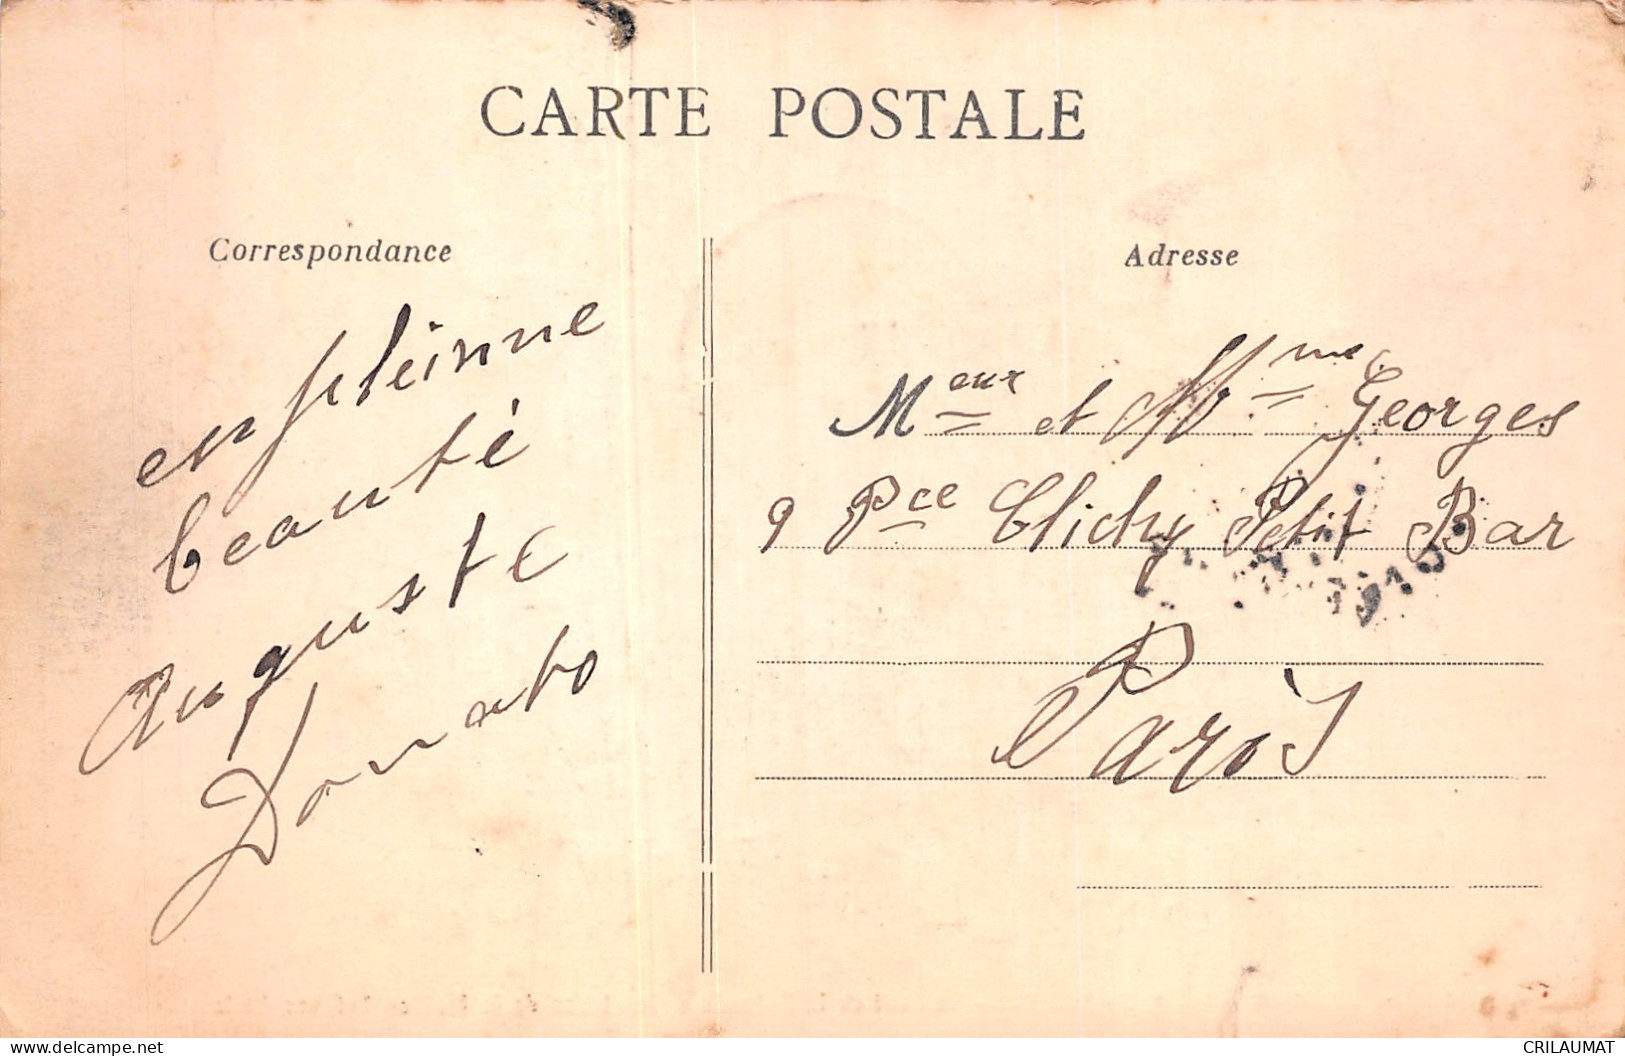 CARTE POSTALE
Correspondance
en pleinne
beauté
Auguste
Donato
Adresse
M eux et Mme Georges
9 Pce Clichy Petit Bar
Paris
delcampe.net
CRILAUMAT